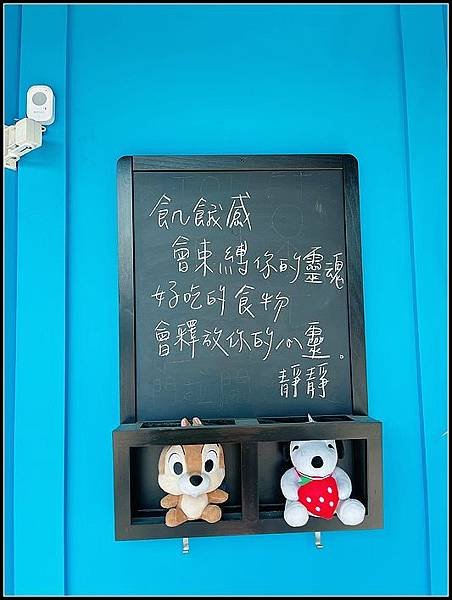 飢餓感
會束縛你的靈魂
好吃的食物
會釋放你的心靈。
靜靜